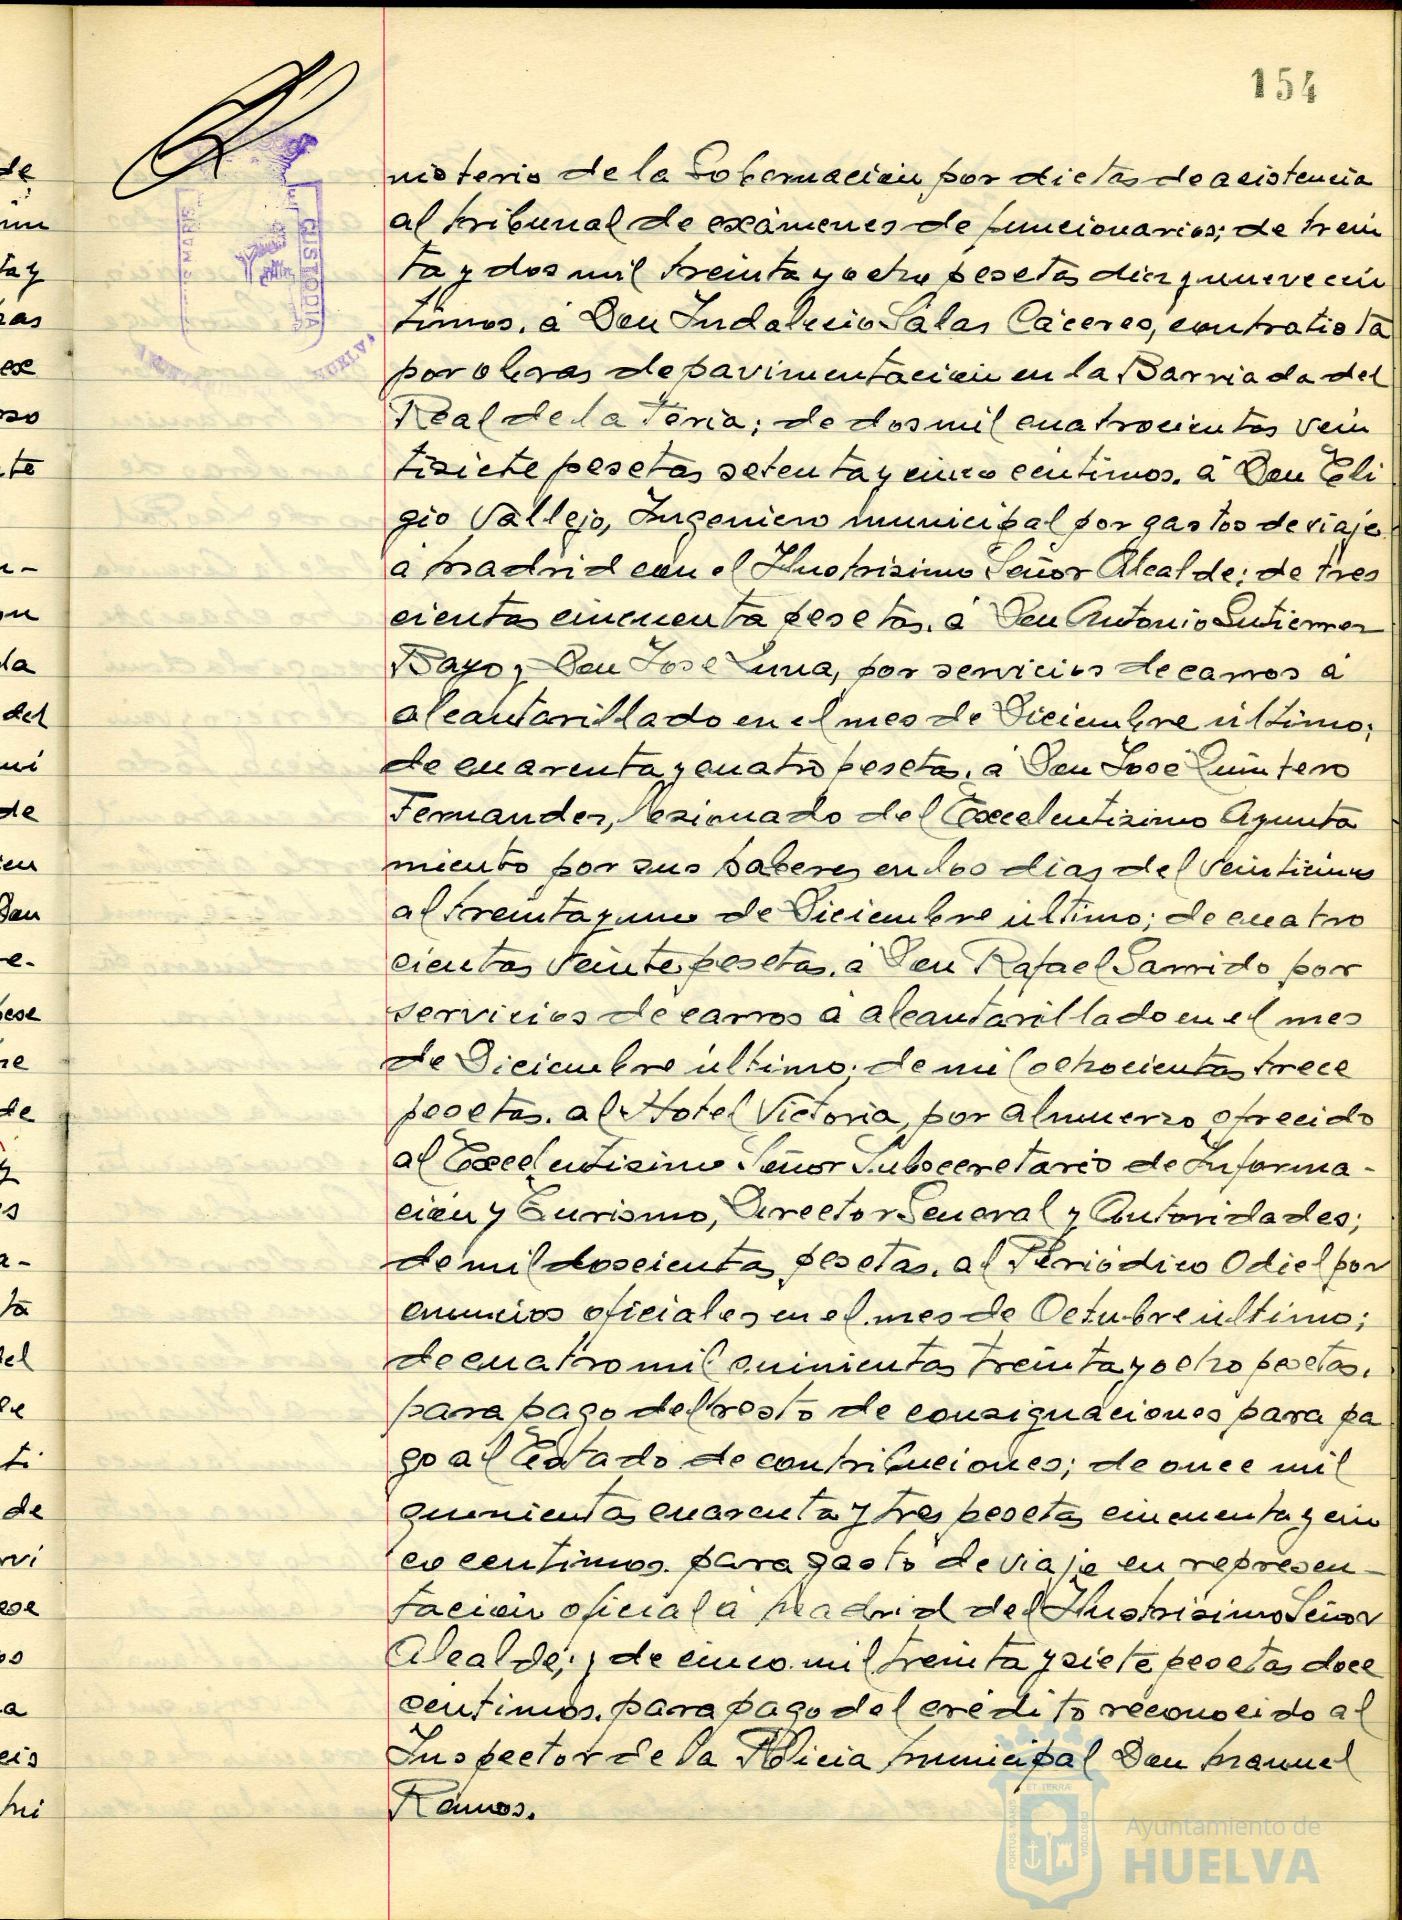 154
nisterio de la Gobernación por dietas de asistencia
al tribunal de exámenes de funcionarios; de trein
ta y dos mil treinta y ocho pesetas diez y nueve cén
timos. á Don Indalecio Salas Cáceres, contratista
por obras de pavimentación en la Barriada del
Real de la Feria; de dos mil cuatrocientas vein
tisiete pesetas setenta y cinco céntimos. á Don Eli
gio Vallejo, Ingeniero municipal por gastos de viaje
á Madrid con el Ilustrisimo Señor Alcalde; de tres
cientas cincuenta pesetas. á Don Antonio Gutierrez
Bayo y Don Jose Luna, por servicios de carros á
alcantarillado en el mes de Diciembre último;
de cuarenta y cuatro pesetas. á Don José Quintero
Fernandez, lesionado del Excelentisimo Ayunta
miento por sus haberes en los dias del veinticinco
al treinta y uno de Diciembre último; de cuatro
cientas veinte pesetas. á Don Rafael Garrido por
servicios de carros á alcantarillado en el mes
de Diciembre último; de mil ochocientas trece
pesetas. al Hotel Victoria, por almuerzo ofrecido
al Excelentisimo Señor Subsecretario de Informa-
ción y Turismo, Director General y Autoridades;
de mil doscientas pesetas. al Periódico Odiel por
anuncios oficiales en el mes de Octubre último;
de cuatro mil quinientas treinta y ocho pesetas.
para pago del resto de consignaciones para pa
go al Estado de contribuciones; de once mil
quinientas cuarenta y tres pesetas cincuenta y cin
co centimos. para gasto de viaje en represen-
tación oficial á Madrid del Ilustrisimo Señor
Alcalde; y de cinco mil treinta y siete pesetas doce
céntimos. para pago del crédito reconocido al
Inspector de la Policia Municipal Don Manuel
Ramos.
CUSTODIA
MARIS
HUELVA
Ayuntamiento de
HUELVA